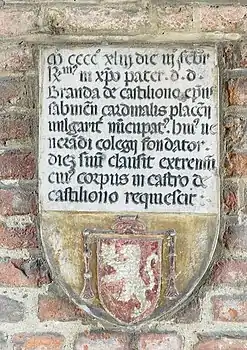 M cccc xliii die iii febr
R.mus in xpo pater. d. d.
Branda de castiliono epus
sabinen cardinalis placen
vulgarit nucupat. hui ve
neradi colegii fondator.
diez suu clausit extremu
cui corpus in castro de
castiliono requiescit